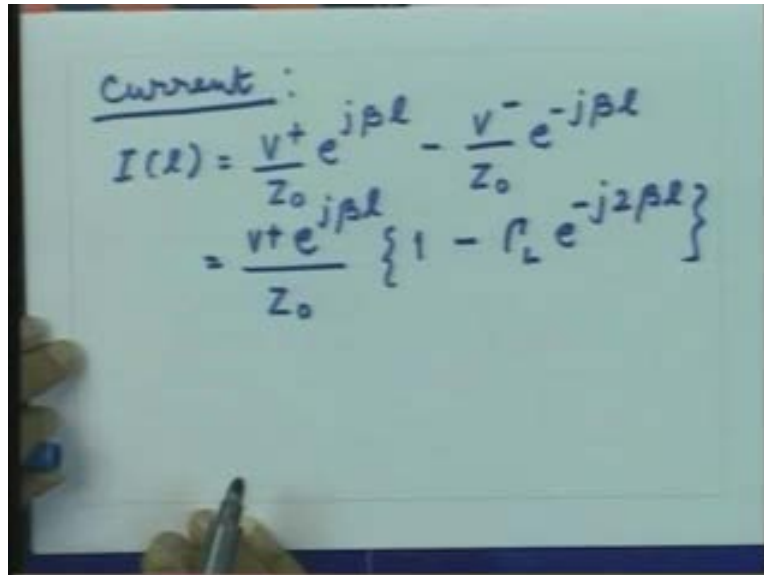 Current :
I(l) = V⁺/Z₀ e^{jβl} - V⁻/Z₀ e^{-jβl}
= V⁺ e^{jβl}/Z₀ { 1 - Γ_L e^{-j2βl} }